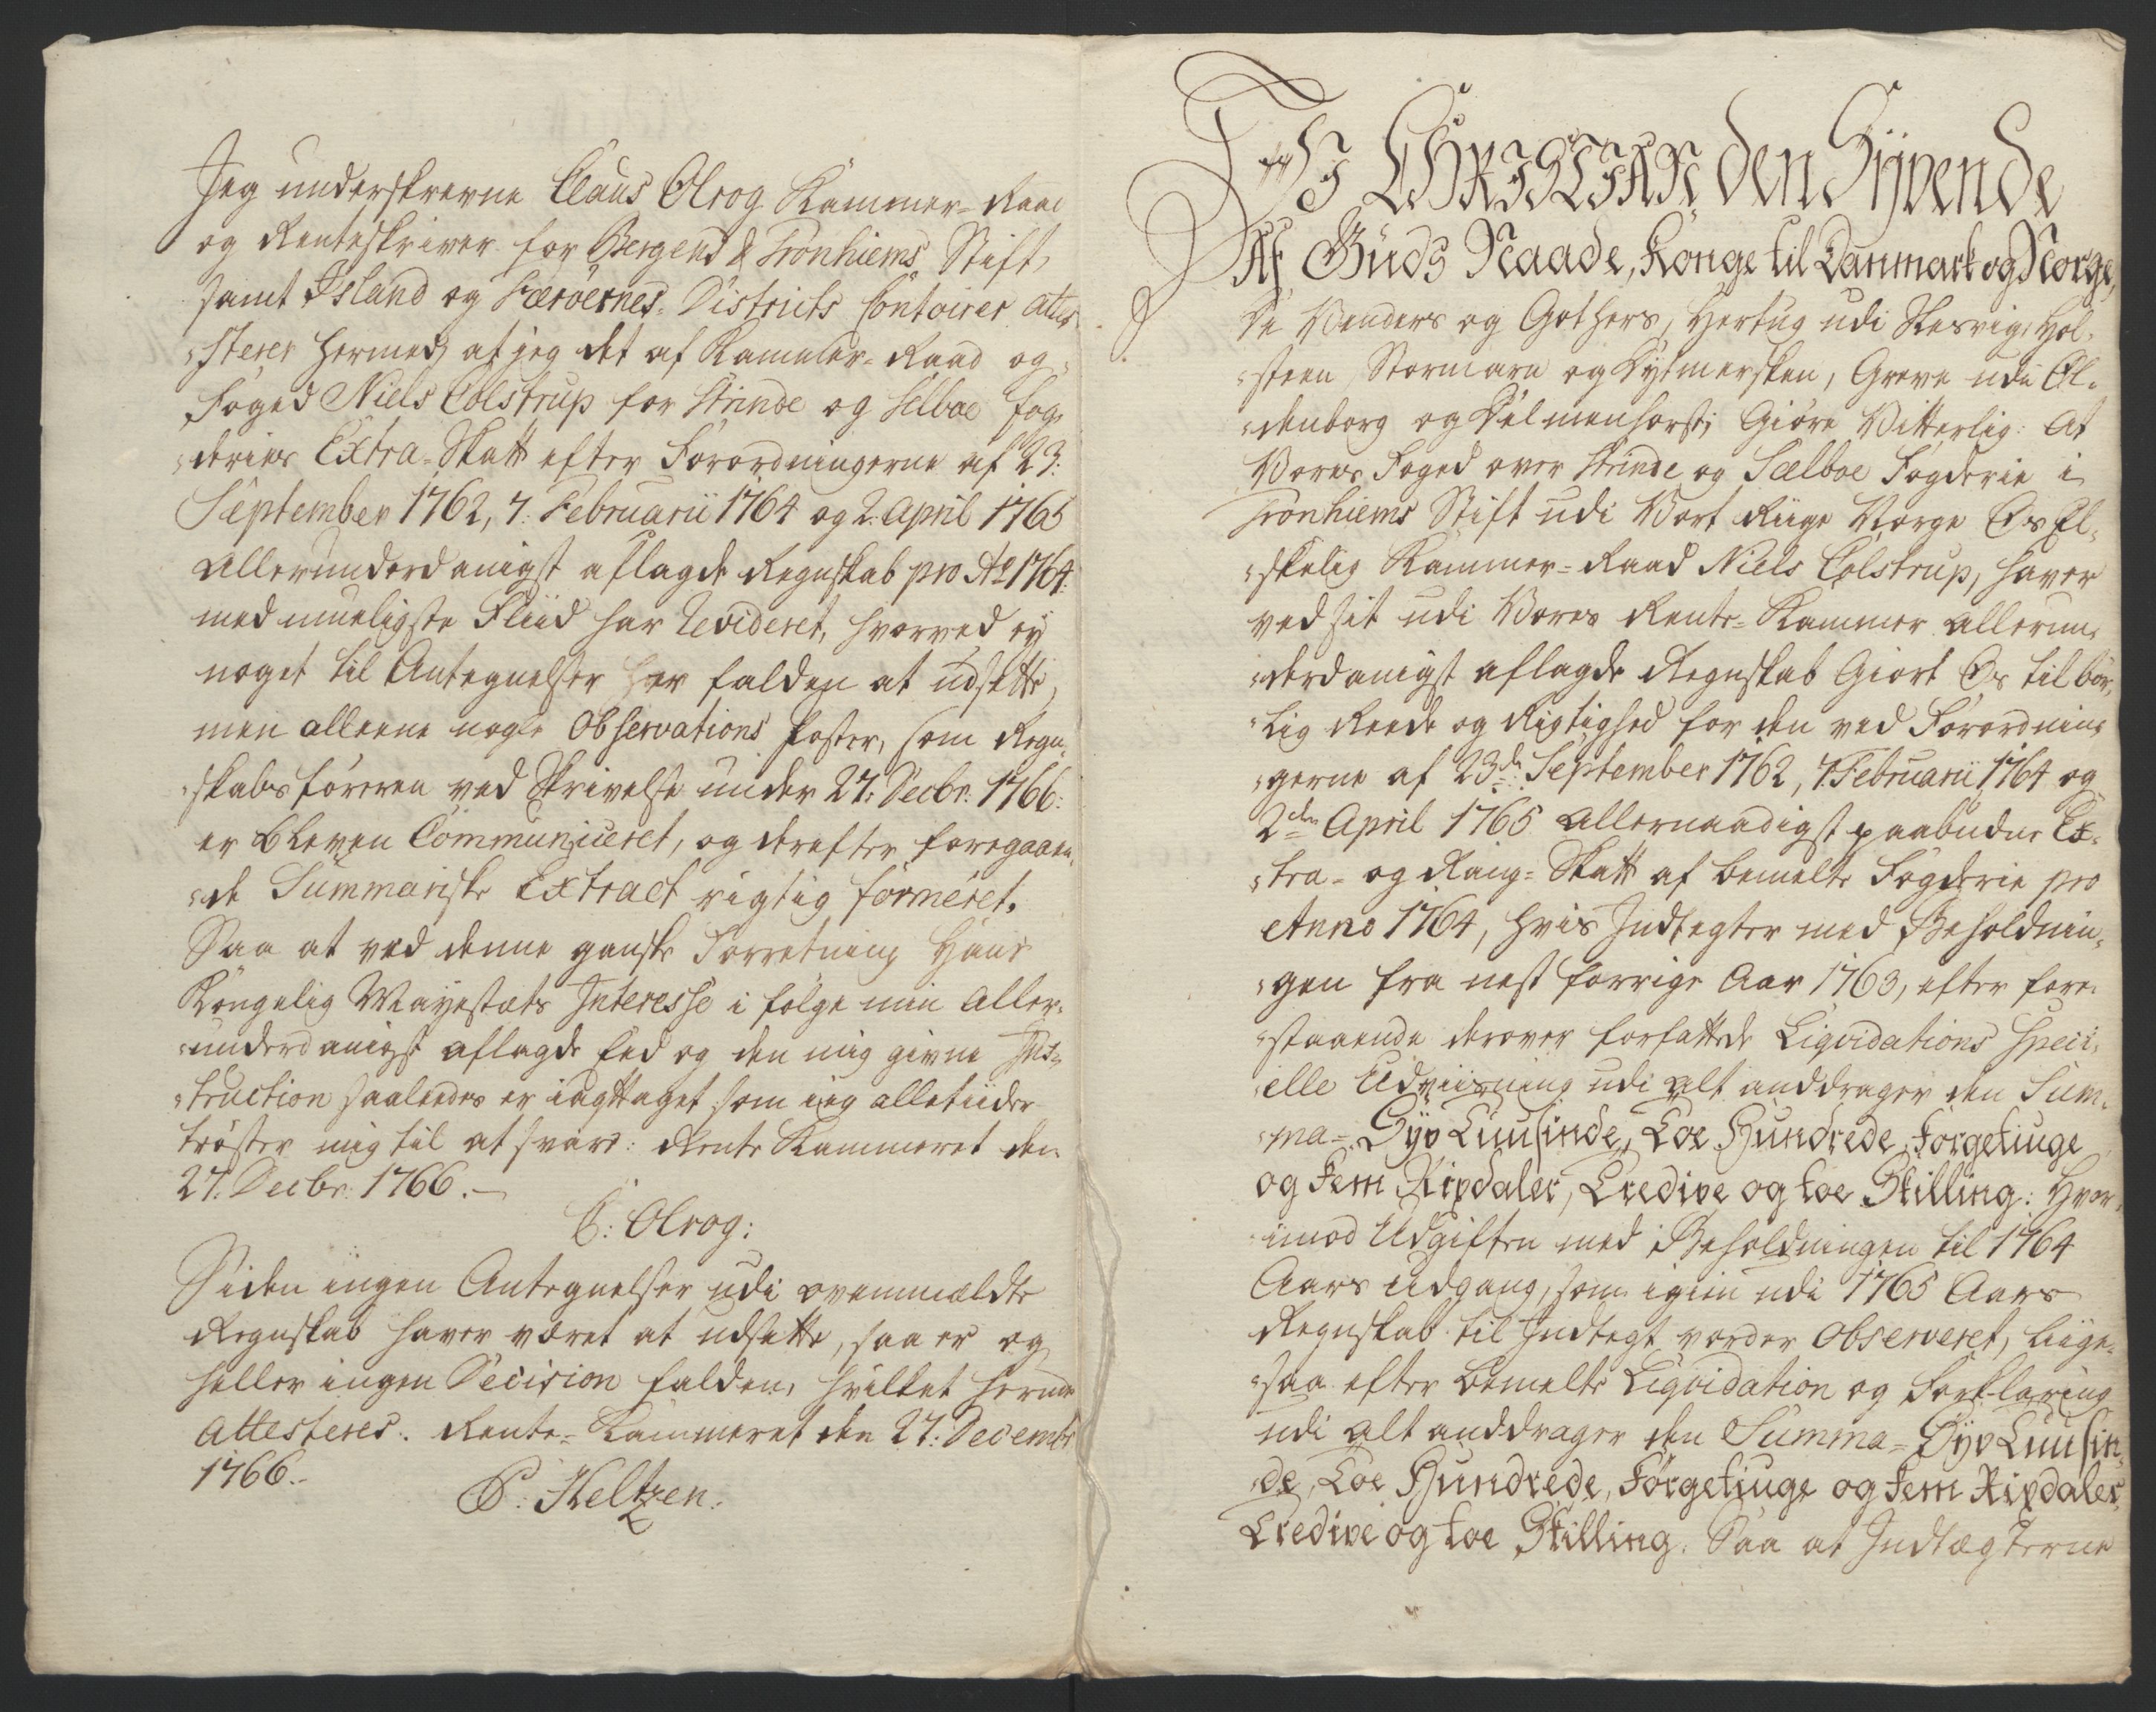 Jeg underskrevne Claus Olrog Kammer-Raad
og Renteskriver for Bergens & Tronhiems Stift,
samt Island og Færøernes Districts Contoirer atte-
-sterer hermed, at jeg det af Kammer-Raad og
Foged Niels Colstrup for Strinde og Selboe Fog-
-deries Extra-Skatt efter Forordningerne af 23:
September 1762, 7: Februarii 1764 og 2. April 1765
Allerunderdanigst aflagde Regnskab pro Ao 1764.
med mueligste Fliid har Revideret, hvorved ej
noget til Antegnelser har falden at udsætte,
men alleene nogle Observations Poster, som Regn-
-skabsføreren ved Skrivelse under 27: Decbr: 1766:
er bleven Communiceret, og derefter foregaaen-
-de Summariske Extract rigtig formeret.
Saa at ved denne ganske Forretning Hans
Kongelig Mayestæts Interesse i følge min Aller-
-underdanigst aflagde Eed og den mig givne Ins-
-truction saaledes er iagttaget som jeg alletiider
trøster mig til at svare: Rente Kammeret den
27: Decbr: 1766.
C: Olrog:
Siden ingen Antegnelser udi ovenmældte
Regnskab haver været at udsætte, saa er og
heller ingen Decision falden, hvilket herved
Attesteres. Rente-Kammeret den 27: Decembr
1766.
P: Heltzen.
VI CHRISTIAN den Syvende
Af Guds Naade, Konge til Danmark og Norge,
De Venders og Gothers, Hertug udi Slesvig, Hol-
-steen, Stormarn og Dytmersken, Greve udi Ol-
-denborg og Delmenhorst; Giøre Vitterlig: At
Vores Foged over Strinde og Sælboe Fogderie i
Tronhiems Stift udi Vort Riige Norge Os El-
-skelig Kammer-Raad Niels Colstrup, haver
ved sit udi Vores Rente-Kammer allerun-
-derdanigst aflagde Regnskab Giort Os tilbør-
-lig Reede og Rigtighed for den ved Forordnin-
-gerne af 23de September 1762, 7. Februarii 1764 og
2den April 1765 Allernaadigst paabudne Ex-
-tra- og Rang-Skatt af bemelte Fogderie pro
Anno 1764, hvis Indtegter med Beholdnin-
-gen fra nest forrige Aar 1763, efter fore-
-staaende derover forfattede Liqvidations Speci-
-elle Udviisning udi alt anddrager den Sum-
-ma- Syv Tuusinde, Toe Hundrede, Førgetiuge
og Fem Rixdaler, Tredive og toe Skilling: Hvor-
-imod Udgiften med Beholdningen til 1764
Aars Udgang, som igien udi 1765 Aars
Regnskab til Indtegt vorder Observeret, liige-
-saa efter bemelte Liqvidation og Forklaring
udi alt anddrager den Summa- Syv Tuusin-
-de, Toe Hundrede, Førgetiuge og Fem Rixdaler,
Tredive og toe Skilling. Saa at Indtægterne